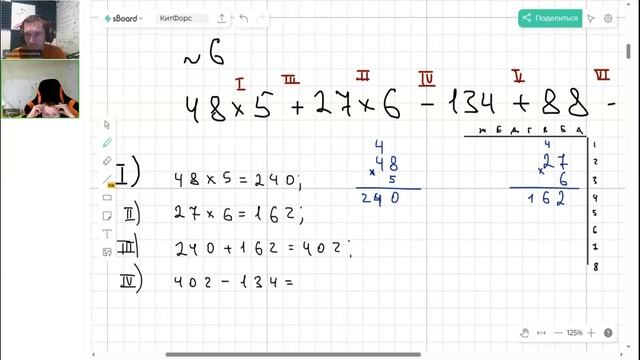 sBoard
КитФорс
Поделиться
~6
I III II IV V VI
48×5+27×6-134+88-
Ж Б Д Г В Б А
4
48
× 5
240
4
27
× 6
162
1
2
3
4
5
6
7
8
I) 48×5=240;
II) 27×6=162;
III) 240+162=402;
IV) 402-134=
125%